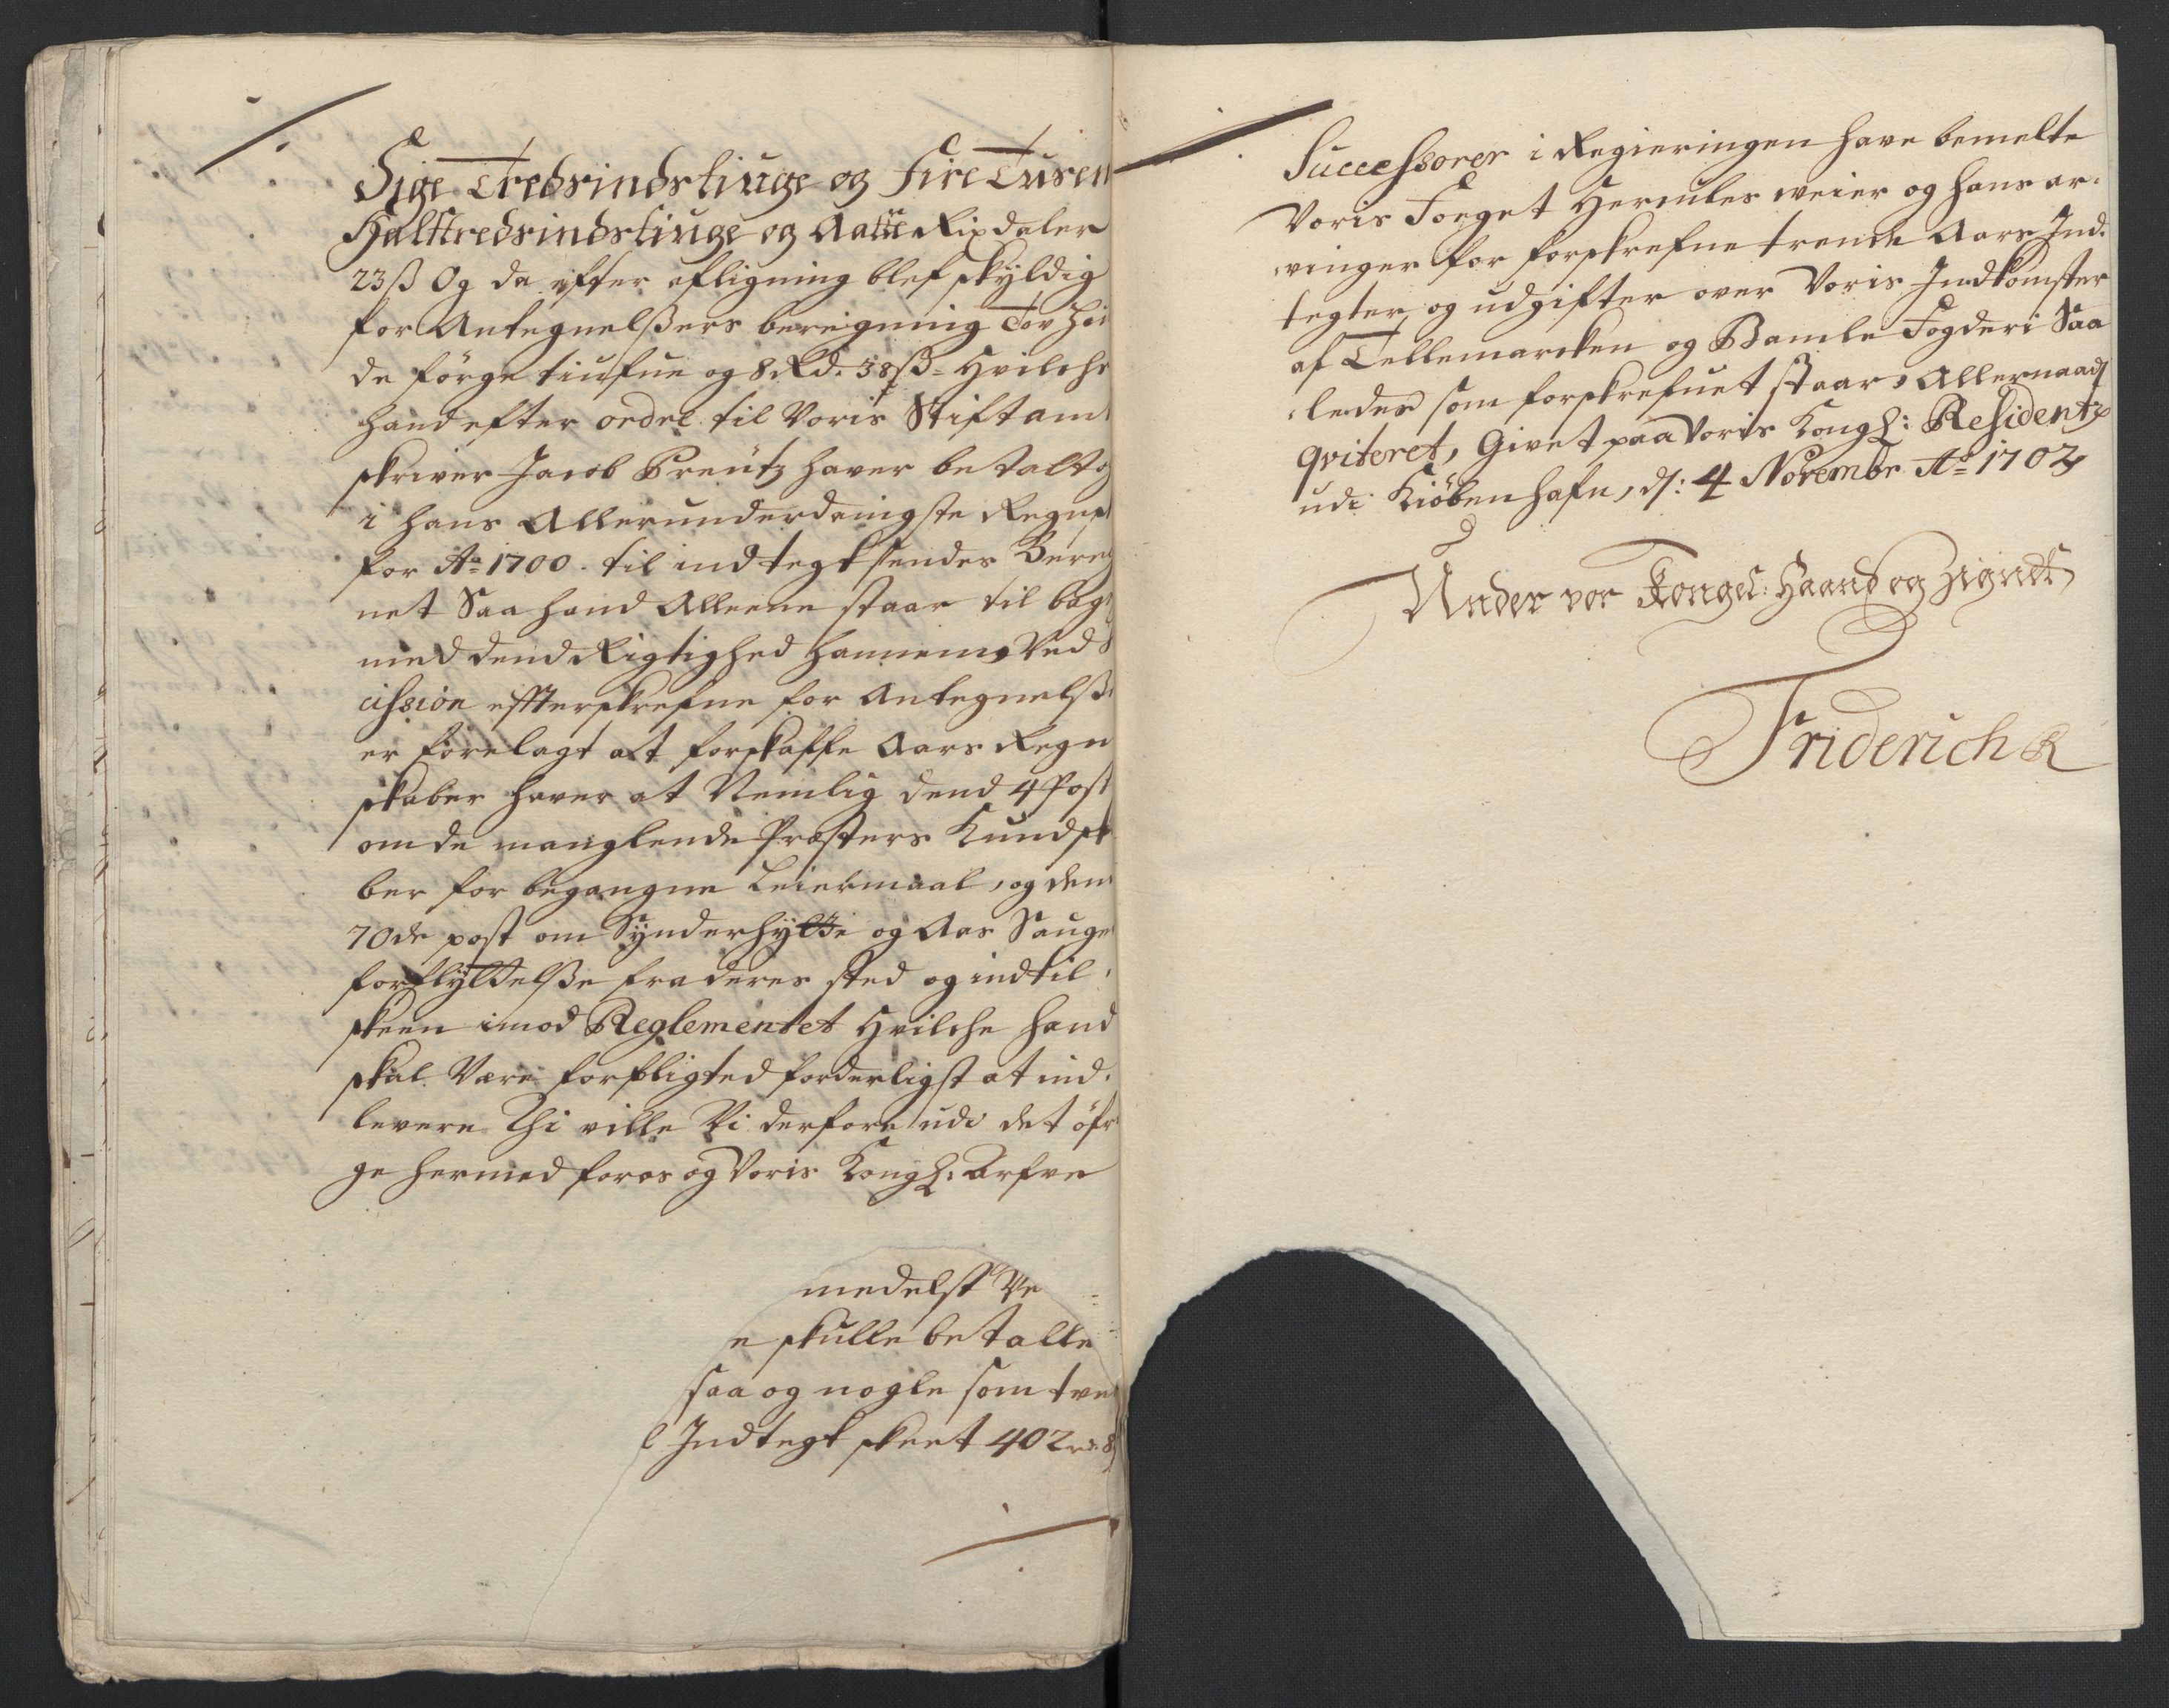 Sige Tredsindstiuge og Fire Tusen
Halfttredsindstiuge og Aatte Rixdaler
23ß Og da efter afligning blef skyldig
for Antegnelßers beregning Tov Hu
de førge tiufue og 8 Rd. 38ß = Hvilche
hand efter ordre til Voris Stiftamt
skriver Jacob Preütz haver betalt og
i hans Allerunderdanigste Regnsk
for Ao 1700. til indtegt sender Bereg
net Saa hand Alleene staar til bage
med dend Rigtighed hannem Ved
cission effterskrefne for Antegnelß
er forelagt at forskaffe Aars Regn
skaber haver at Nemlig dend 4 Post
om de manglende Præsters Kundsk
ber for begangne Leiermaal, og den
70de post om Synderhytte og Aas Sauge
forflyttelße fra deres sted og indtil
skeen imod Reglementet Hvilche hand
skal Være forpligted forderligst at ind.
levere Thi ville Vi derfore udi det öfr
ge hermed for os og Voris Kongl: Arfve
medelst Ve
e skulle betalle
saa og nogle som tve
l Indtegt skeet 402 rd. 8
Successorer i Regieringen have bemelte
Voris Foeget Hercules Weier og hans ar-
vinger for forskrefne trende Aars Ind-
tegter og udgifter over Voris Indkomster
af Tellemarcken og Bamle Fogderi Saa
ledes som forskrefuet staar, Allernaadst
qviteret, Givet paa Voris Kongl: Residentz
udi Kiöbenhafn, d: 4 Novembr Ao 1702
Under vor Kongel: Haand og Zignet
Friderich R